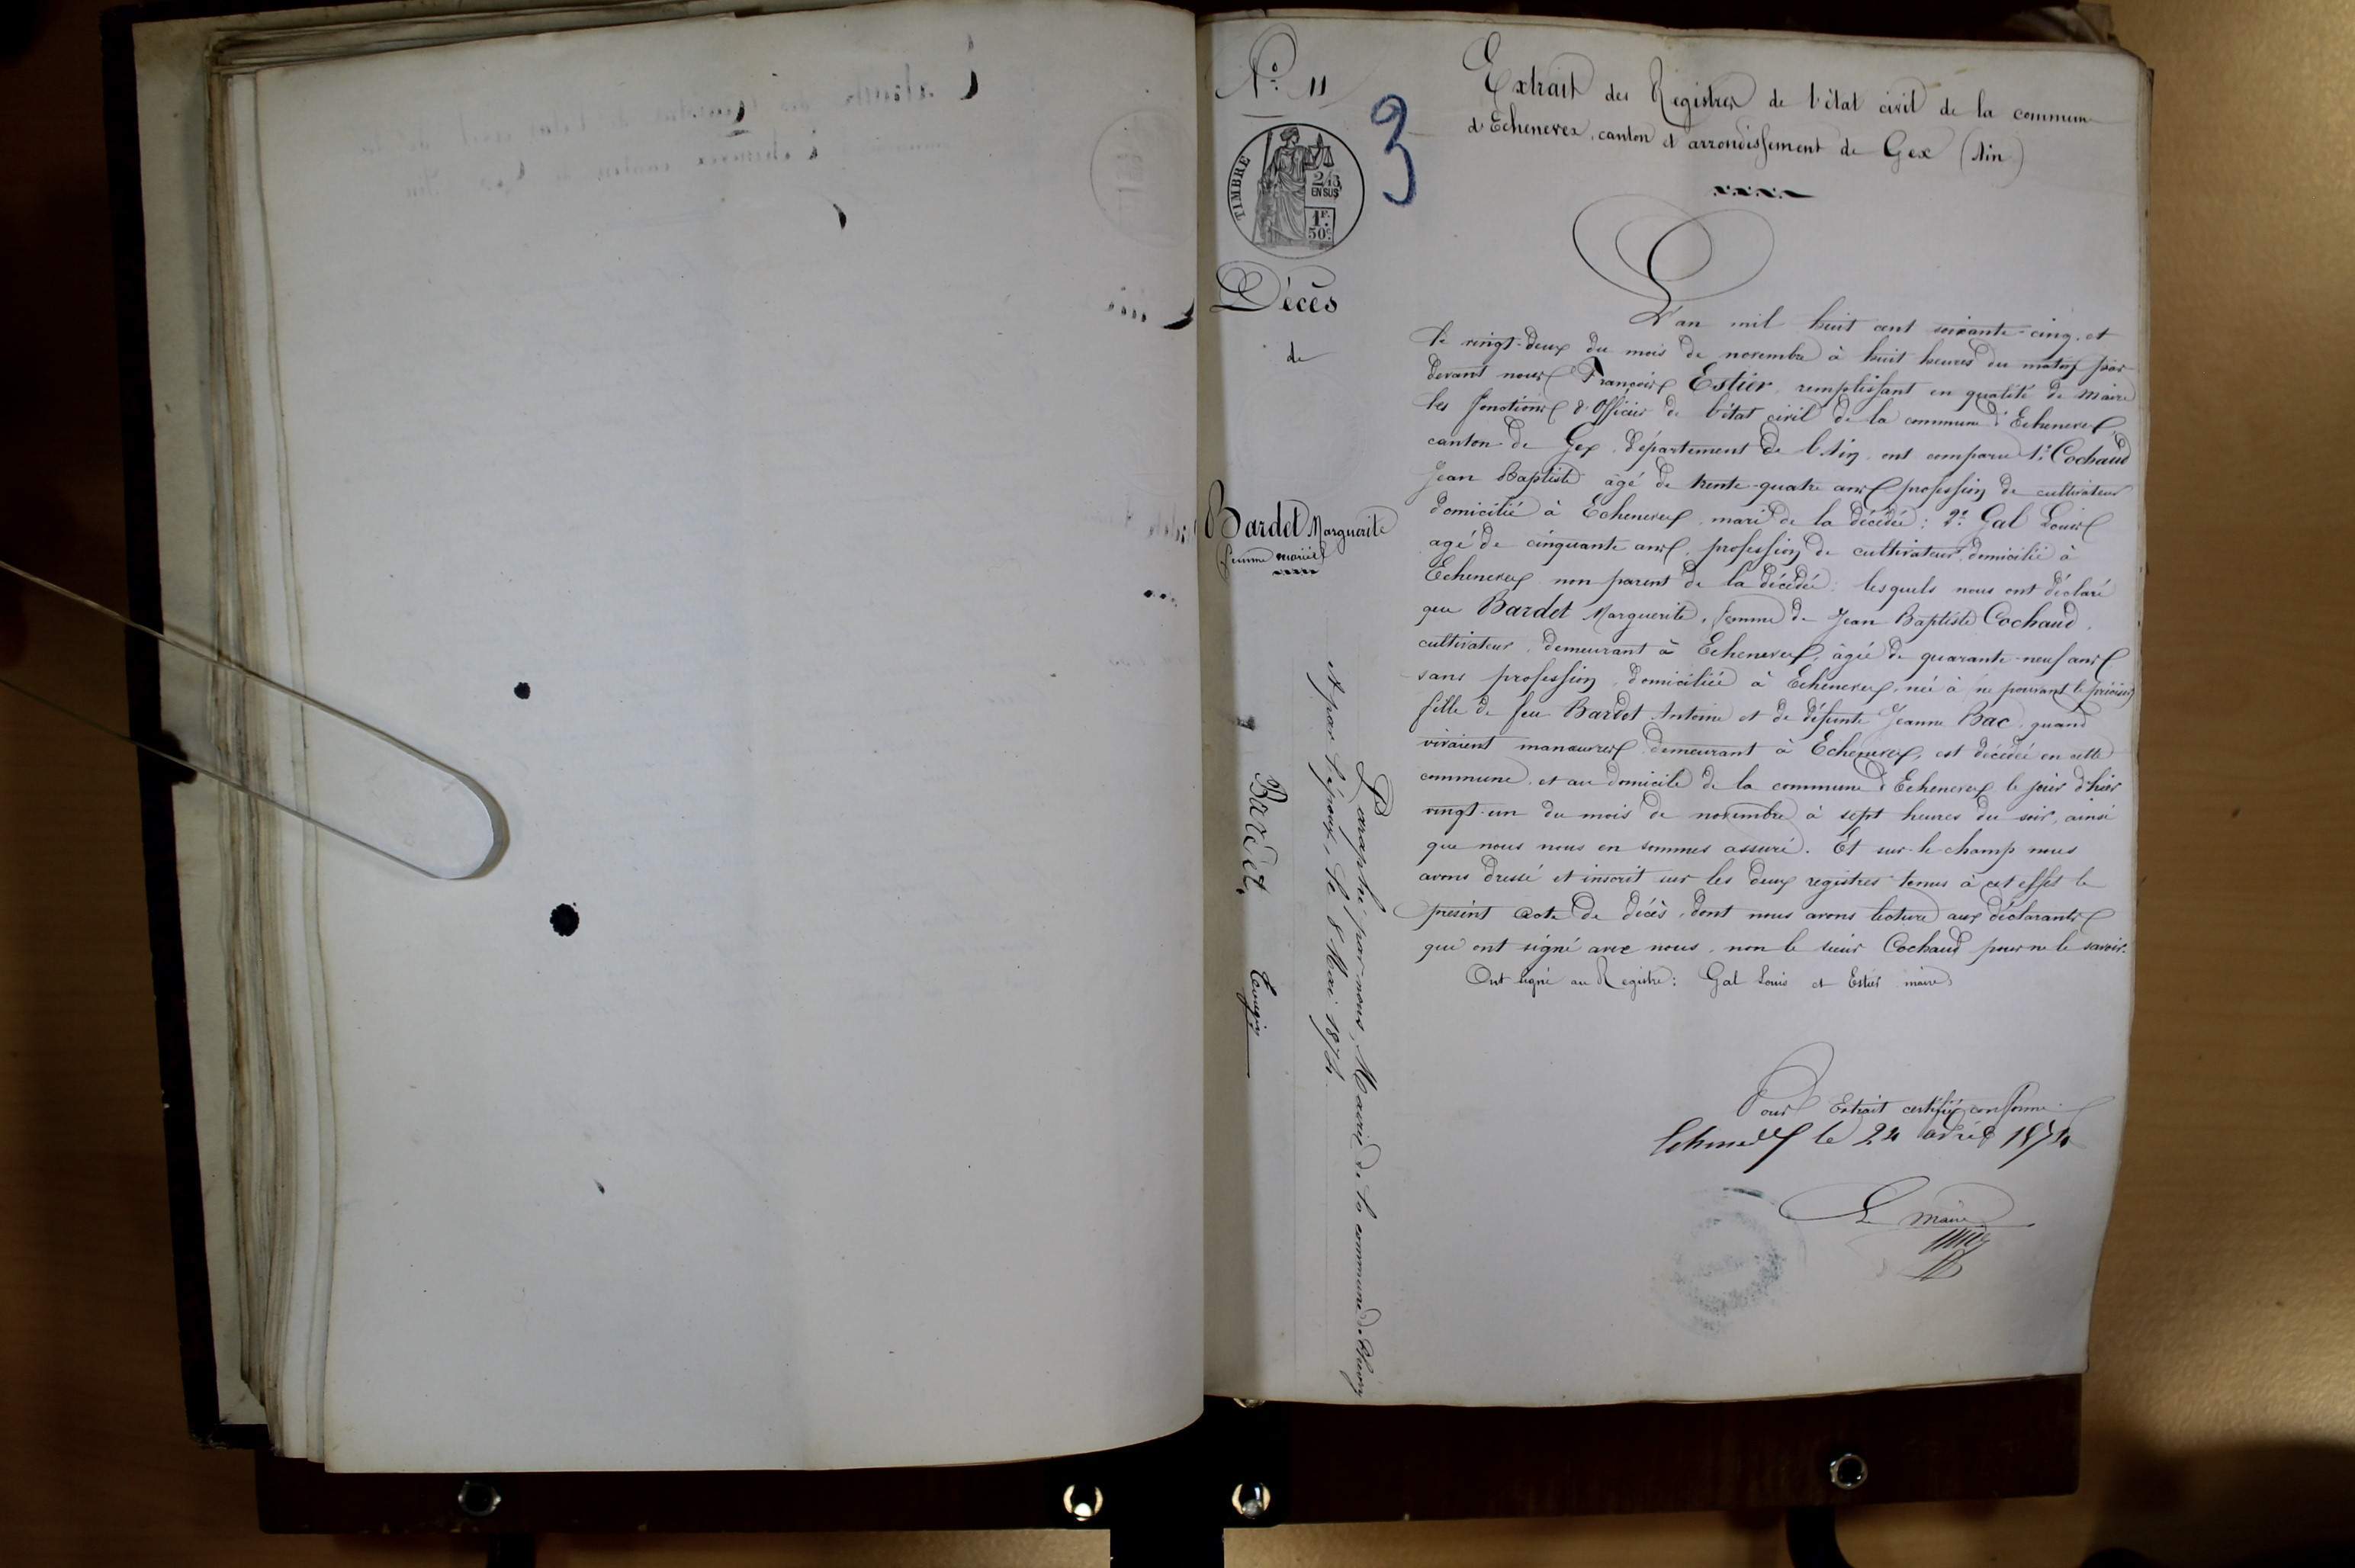 N° 11
3
TIMBRE
2/10
EN SUS
1F.
50c.
Décès
de
Bardet Marguerite
femme mariée
Extrait des Registres de l'état civil de la commune
d'Echenevex, canton et arrondissement de Gex (Ain)
L'an mil huit cent soixante-cinq, et
le vingt-deux du mois de novembre à huit heures du matin par
devant nous François Estier, remplissant en qualité de maire
les fonctions d'Officier de l'état civil de la commune d'Echenevex,
canton de Gex, département de l'Ain, ont comparu 1° Cochaud
Jean Baptiste âgé de trente-quatre ans profession de cultivateur
domicilié à Echenevex, mari de la décédée: 2° Gal Louis
agé de cinquante ans, profession de cultivateur domicilié à
Echenevex non parent de la décédée: lesquels nous ont déclaré
que Bardet Marguerite, femme de Jean Baptiste Cochaud,
cultivateur, demeurant à Echenevex, âgée de quarante-neuf ans
sans profession, domiciliée à Echenevex, née à ne pouvant le préciser
fille de feu Bardet Antoine et de défunte Jeanne Bac, quand
vivaient manœuvres demeurant à Echenevex, est décédée en cette
commune, et au domicile de la commune d'Echenevex le jour d'hier
vingt-un du mois de novembre à sept heures du soir, ainsi
que nous nous en sommes assuré. Et sur-le-champ nous
avons dressé et inscrit sur les deux registres tenus à cet effet le
présent acte de décès, dont nous avons lecture aux déclarants
qui ont signé avec nous, non le sieur Cochaud pour ne le savoir.
Ont signé au Registre: Gal Louis et Estier maire
Pour Extrait certifié conforme
Echenevex le 24 avril 1874
Le maire
Paraphé par nous, Maire de la commune de Thoiry
et par l'époux, le 8 Mai 1874
Bardet